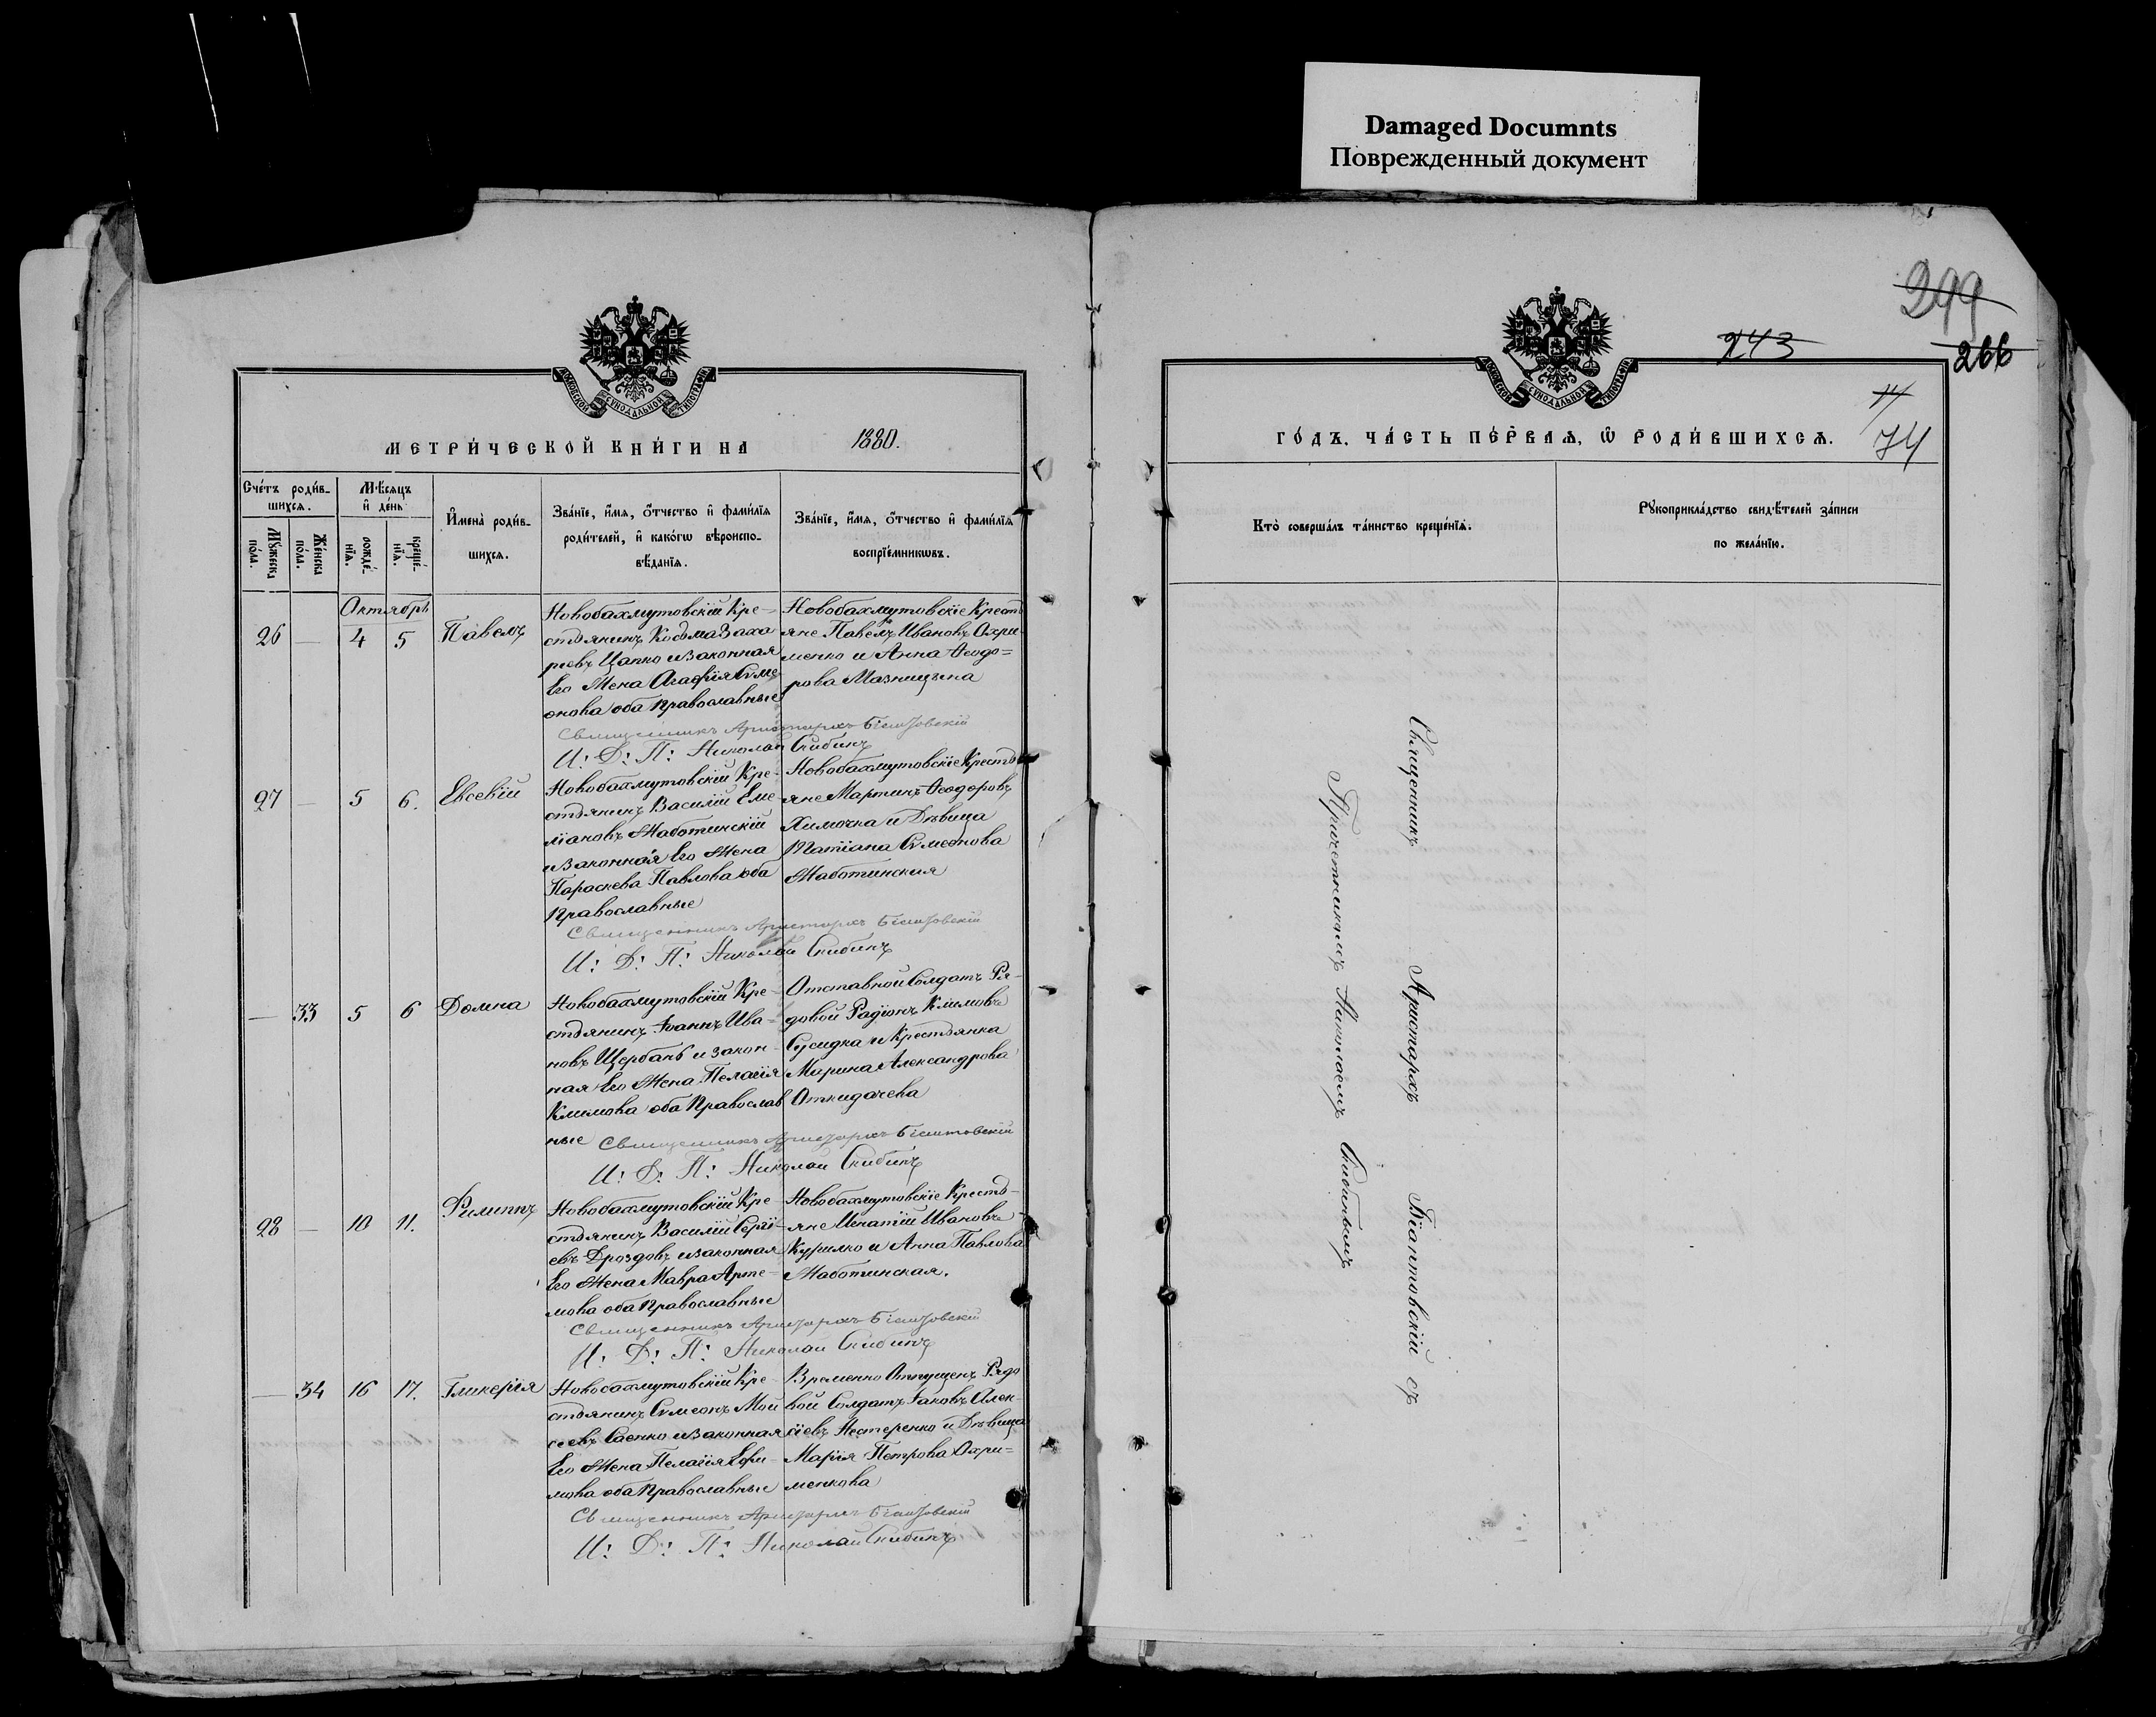 Damaged Documnts
Поврежденный документ
299
243
266
МОСКОВСКОЙ СѴНОДАЛЬНОЙ ТИПОГРАФІИ
МЕТРИ́ЧЕСКОЙ КНИ́ГИ НА 1880.
Сче́тъ роди́в-
шихсѧ.
Мꙋ́жеска
по́ла.
Же́нска
по́ла.
Мѣ́сѧцъ
и҆ де́нь
рожде́-
нїѧ.
креще́-
нїѧ.
И҆мена̀ роди́в-
шихсѧ.
Зва́нїе, и҆́мѧ, ѻ҆́тчество и҆ фами́лїѧ
роди́телей, и҆ како́гѡ вѣроиспо-
вѣ́данїѧ.
Зва́нїе, и҆́мѧ, ѻ҆́тчество и҆ фами́лїѧ
воспрїе́мникѡвъ.
Октябрь
26 — 4 5 Павелъ
Новобахмутовскій Кре-
стьянинъ Косьма Заха
ріевъ Цапко и законная
Его Жена Агафія Сѵме
онова оба Православные
Новобахмутовскіе Кресть
яне Павелъ Ивановъ Охри-
менко и Анна Ѳеодо=
рова Мазницына
Священникъ Аристархъ Біантовскій
И: Д: П: Николай Скибинъ
27 — 5 6. Евсевій
Новобахмутовскій Кре-
стьянинъ Василій Еме
ліановъ Жаботинскій
и законная Его Жена
Параскева Павлова оба
Православные
Новобахмутовскіе Кресть
яне Мартинъ Ѳеодоровъ
Химочка и Дѣвица
Татіана Сѵмеонова
Жаботинская
Священникъ Аристархъ Біантовскій
И: Д: П: Николай Скибинъ
— 33 5 6 Домна
Новобахмутовскій Кре-
стьянинъ Іоаннъ Ива-
новъ Щербань и закон-
ная Его Жена Пелагія
Климова оба Православ
ные
Отставной Солдатъ Ря-
довой Радіонъ Климовъ
Сусидка и Крестьянка
Ирина Александрова
Откидачева
Священникъ Аристархъ Біантовскій
И: Д: П: Николай Скибинъ
28 — 10 11. Филиппъ
Новобахмутовскій Кре-
стьянинъ Василій Сергі-
евъ Дроздовъ и законная
Его Жена Мавра Арте-
мова оба Православные
Новобахмутовскіе Кресть-
яне Игнатій Ивановъ
Курилко и Анна Павлова
Жаботинская.
Священникъ Аристархъ Біантовскій
И: Д: П: Николай Скибинъ
— 34 16 17. Гликерія
Новобахмутовскій Кре-
стьянинъ Сѵмеонъ Мой
сеевъ Саенко и законная
Его Жена Пелагія Ефи-
мова оба Православные
Временно Отпущенъ Рядо
вой Солдатъ Іаковъ Алек-
сіевъ Нестеренко и Дѣвица
Марія Петрова Охри=
менкова
Священникъ Аристархъ Біантовскій
И: Д: П: Николай Скибинъ
МОСКОВСКОЙ СѴНОДАЛЬНОЙ ТИПОГРАФІИ
ГО́ДЪ. ЧА́СТЬ ПЕ́РВАѦ, Ѡ҆ РОДИ́ВШИХСѦ.
74
Кто̀ соверша́лъ та́инство креще́нїѧ.
Рꙋкоприкла́дство свидѣ́телей за́писи
по жела́нїю.
Священникъ Аристархъ Біантовскій съ
Причетникомъ Николаемъ Скибинымъ